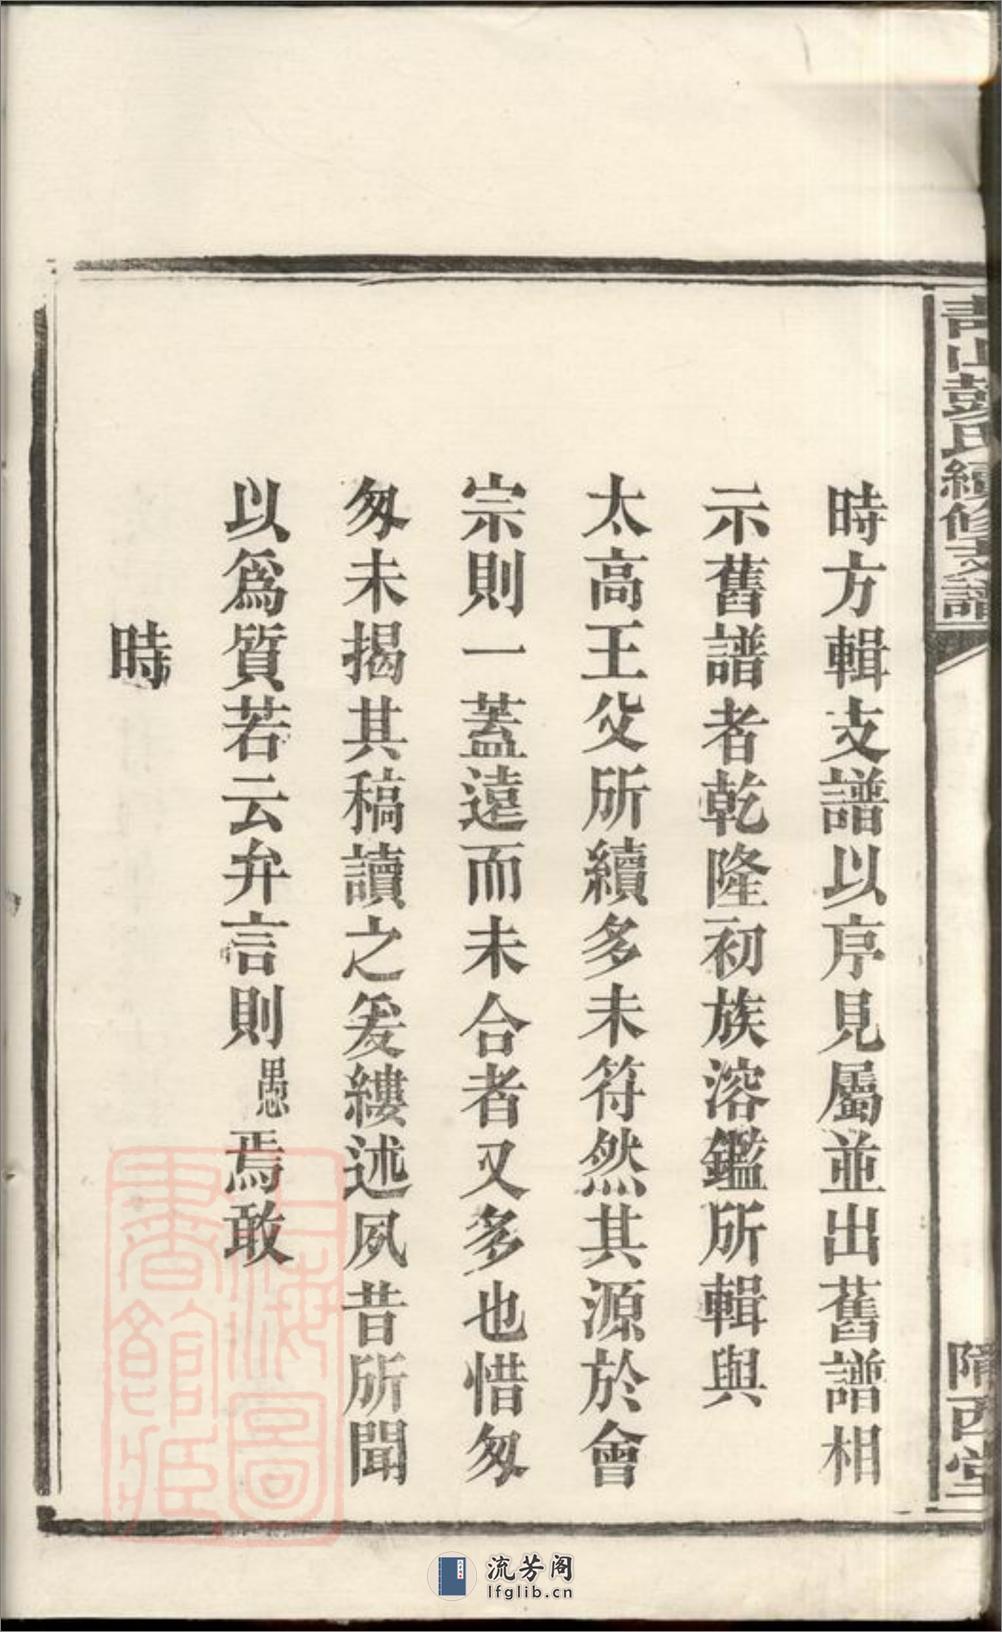 青山彭氏續修支譜
隋西堂
時方輯支譜以序見屬並出舊譜相
示舊譜者乾隆初族溶鑑所輯與
太高王父所續多未符然其源於會
宗則一蓋遠而未合者又多也惜匆
匆未揭其稿讀之爰縷述夙昔所聞
以爲質若云弁言則愚焉敢
時
上海圖
書館藏
流芳阁
lfglib.cn